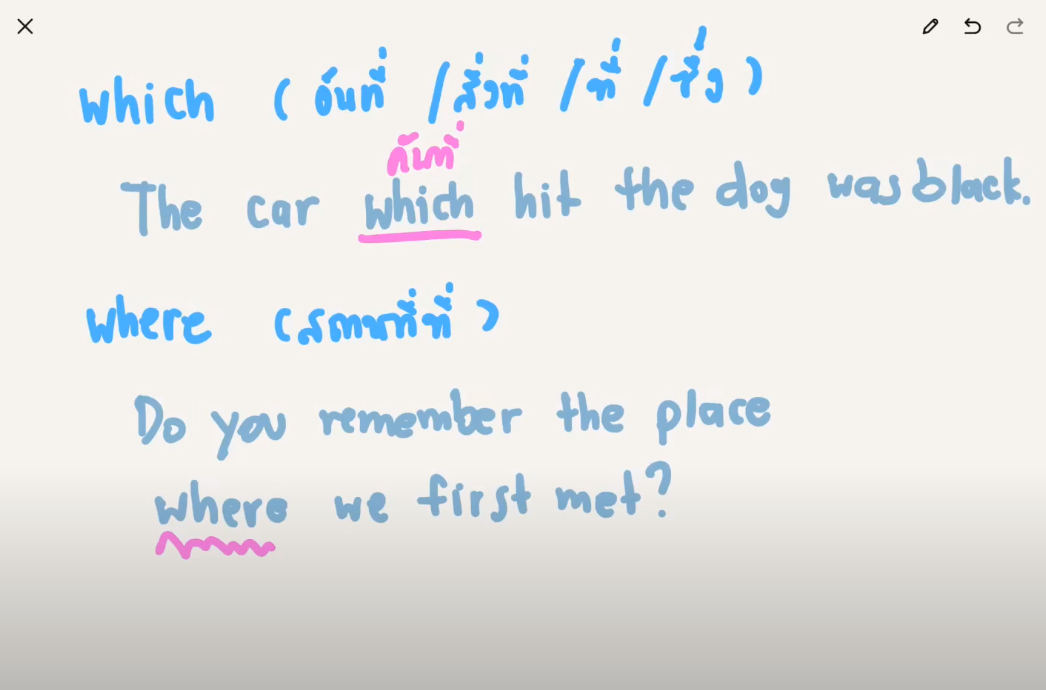 which (อันที่ /สิ่งที่ /ที่ /ซึ่ง)
คันที่
The car which hit the dog was black.
where (สถานที่ที่)
Do you remember the place
where we first met?